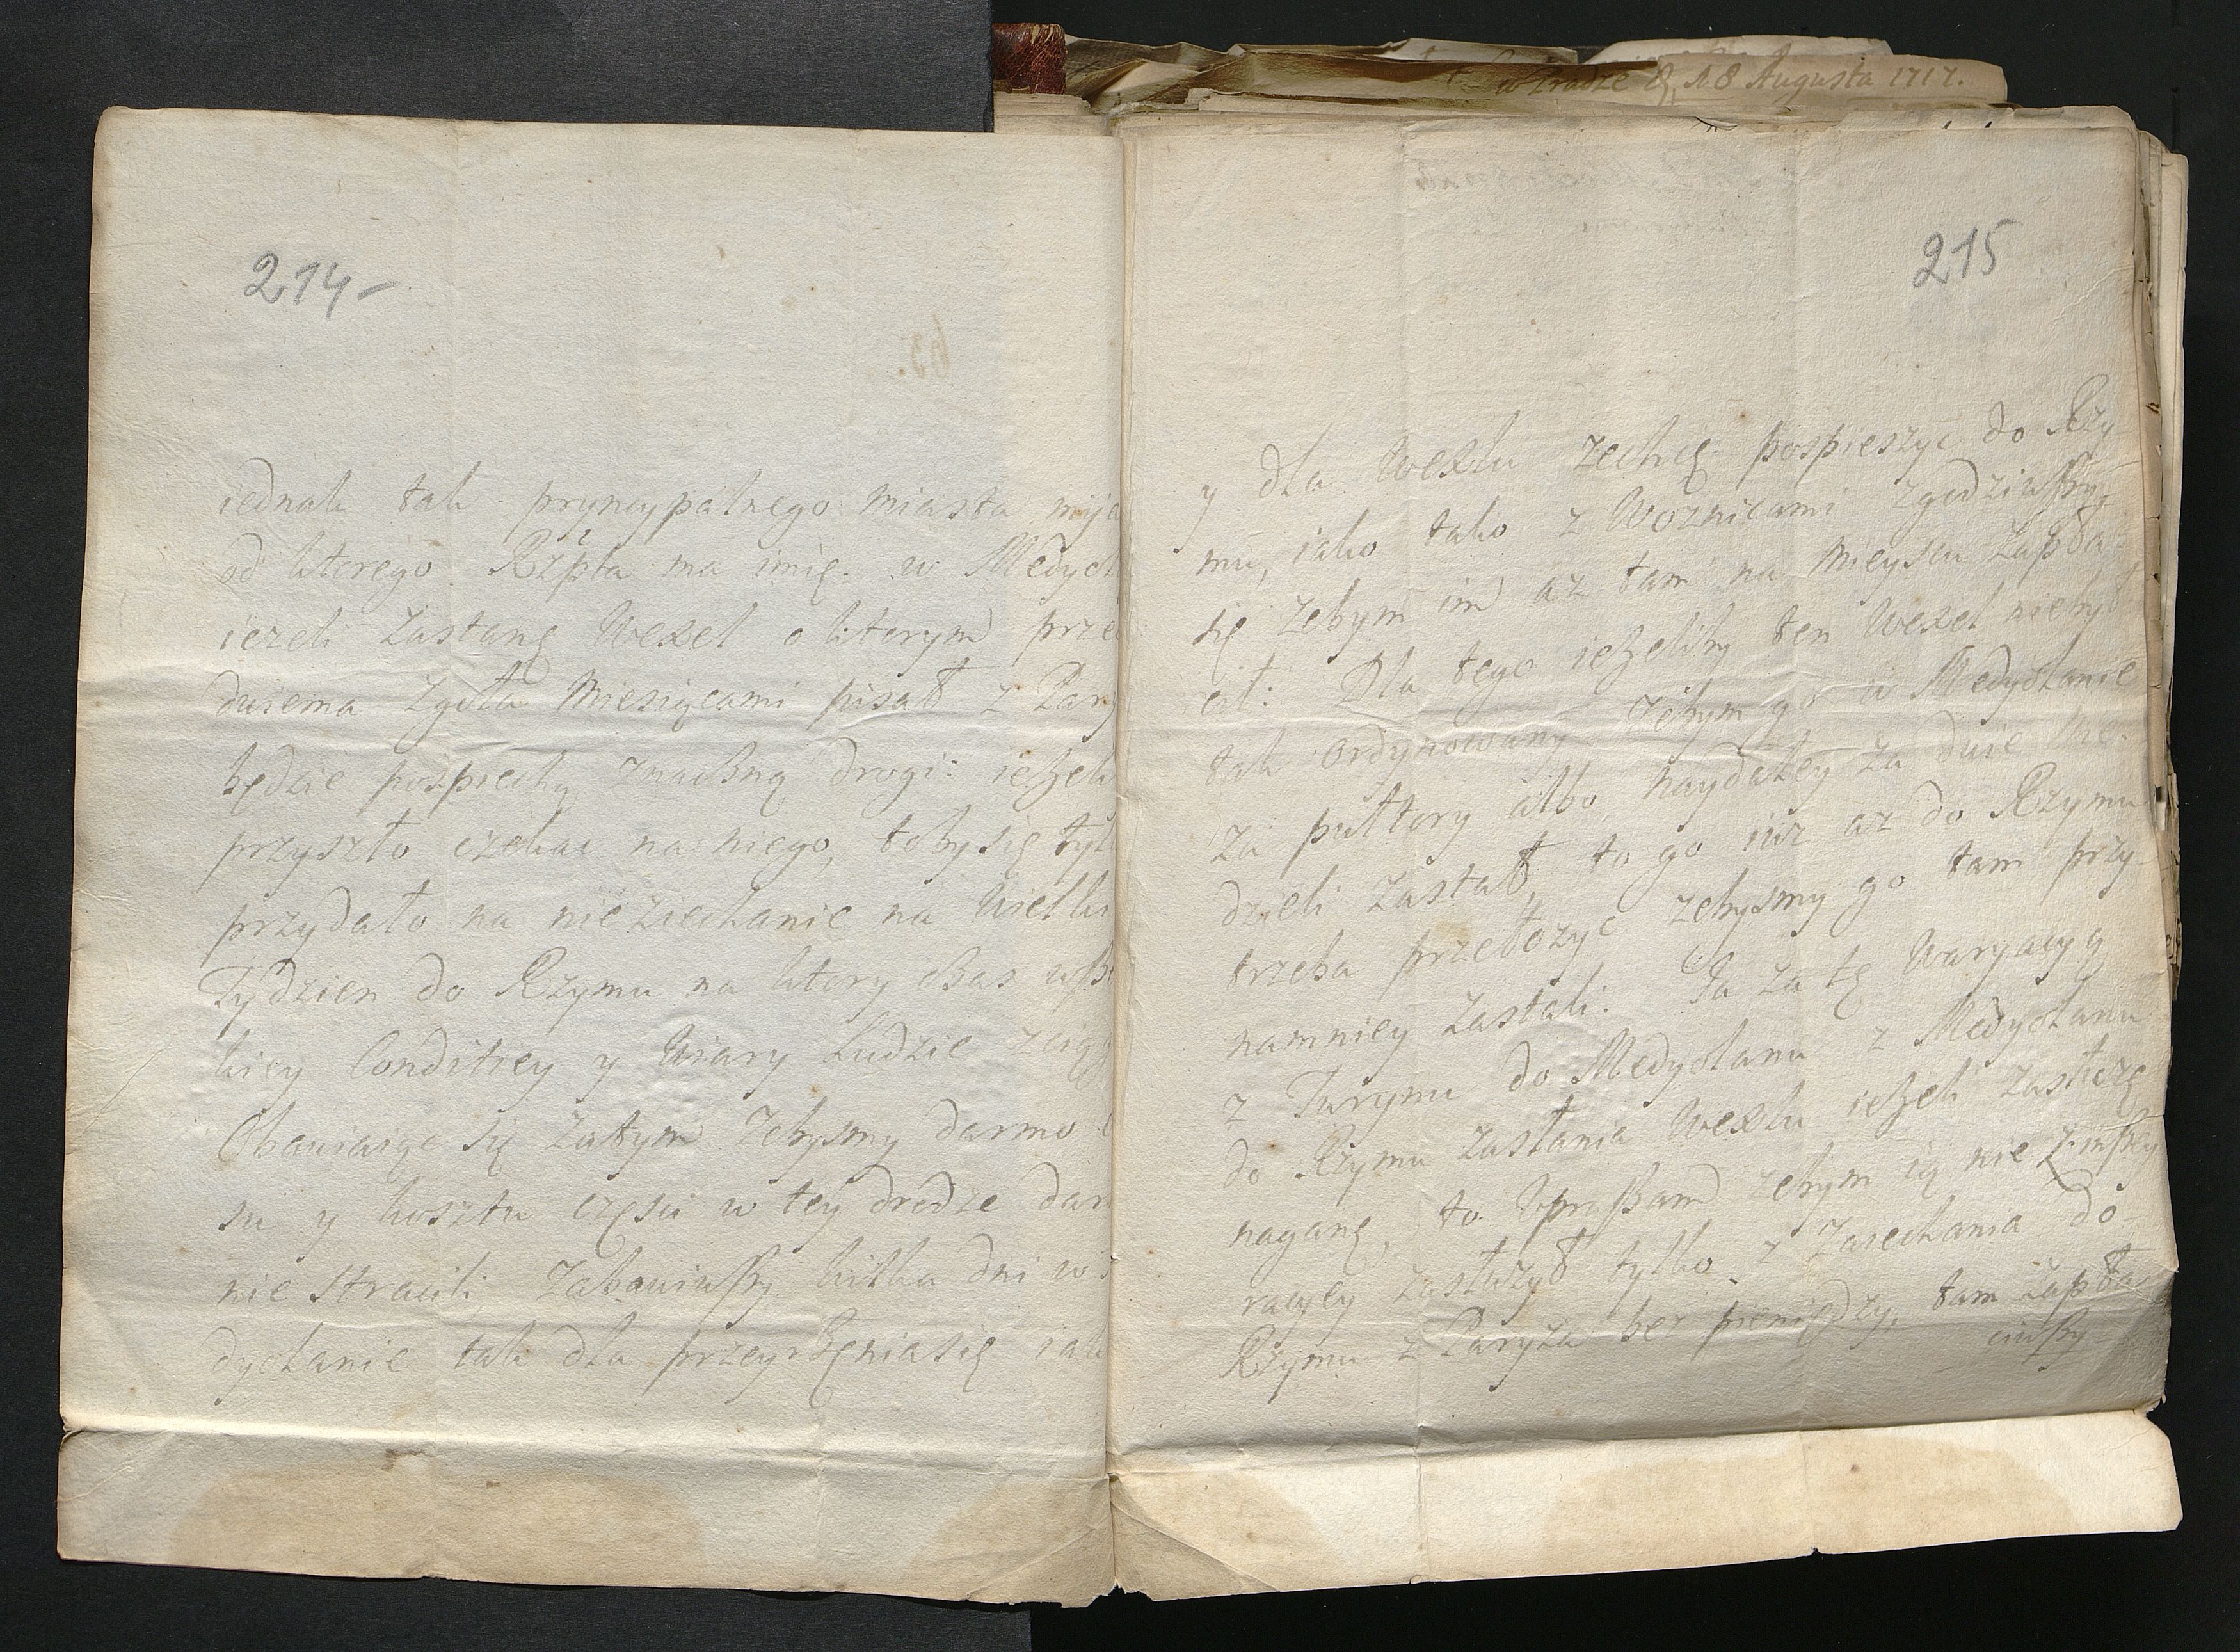 w Pradze d. 18 Augusta 1717.
214-
iednak tak pryncypalnego miasta mija
od ktorego Rzpta ma imię. w Medyol
ieżeli zastanę Wexel o ktorym prze
dwiema zgoła Miesiącami pisał z Pary
będzie pospiechą znaczną drogi: ieżeli
przyszło czekać na niego, toby się tyl
przydało na nieziechanie na Wielki
Tydzien do Rzymu na ktory Czas wsze
kiey Conditiey y Wiary Ludzie zcią
Obawiaiąc się zatym żebysmy darmo
su y kosztu częsci w tey drodze dar
nie stracili, zabawiwszy kilka dni w
dyolanie tak dla przeyrzenia się iak
215
y dla Wexlu zechcę pospieszyc do Rzy
mu, iako tako z Woznicami zgodziwszy
się żebym im aż tam na mieyscu zapła-
cił: Dla tego ieżeliby ten Wexel niebył
tak ordynowany żebym go w Medyolanie
za pułtory albo naydaley za dwie Nie-
dzieli zastał, to go iuż aż do Rzymu
trzeba przełożyc żebysmy go tam przy-
namniey zastali. Ja za tę Waryacyą
z Turynu do Medyolanu z Medyolanu
do Rzymu zastania Wexlu ieżeli zasłużę
naganę, to upraszam żebym ią nie zwszy
racyey zasłużył tylko z Zaiechania do-
Rzymu z Paryża bez pieniędzy, tam zapła-
ciwszy